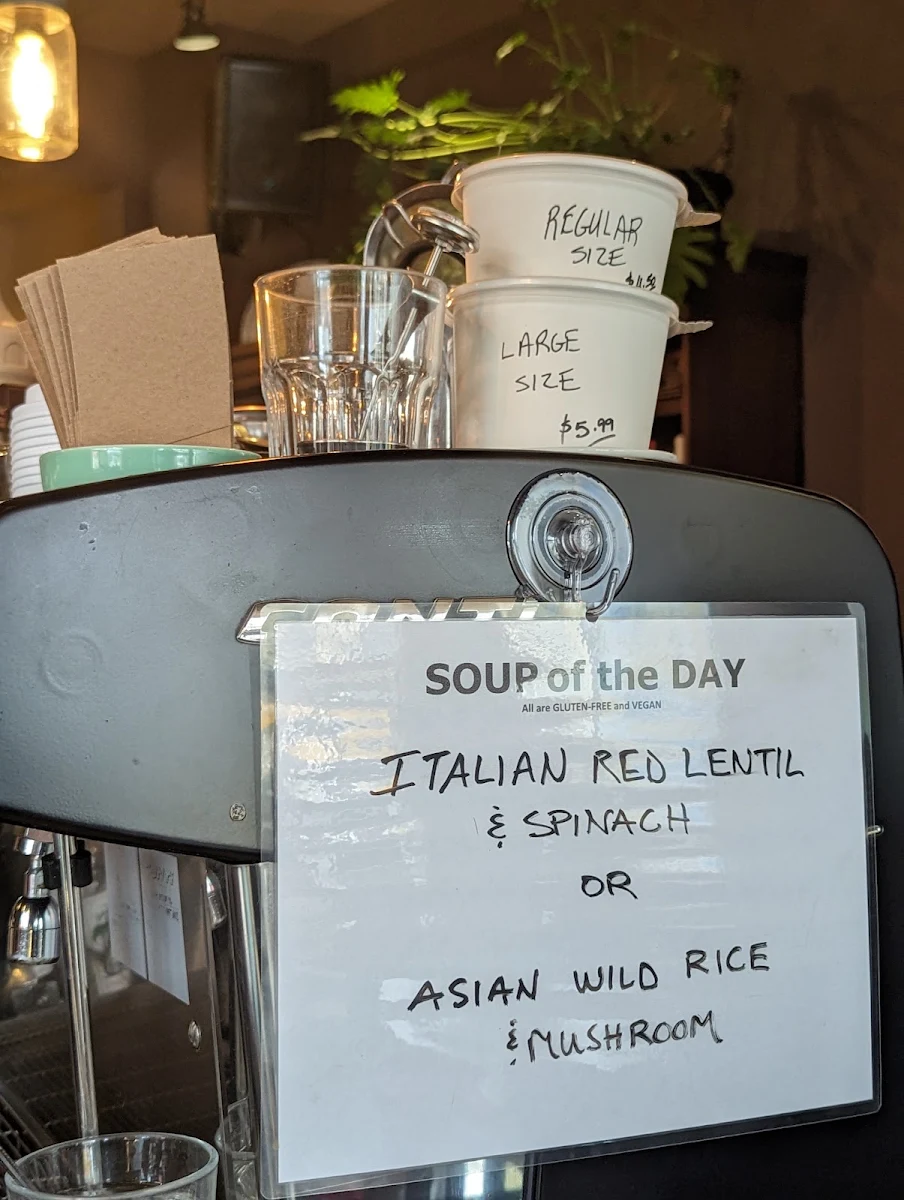 REGULAR
SIZE
LARGE
SIZE
$5.99
CONTI
SOUP of the DAY
All are GLUTEN-FREE and VEGAN
ITALIAN RED LENTIL
& SPINACH
OR
ASIAN WILD RICE
& MUSHROOM